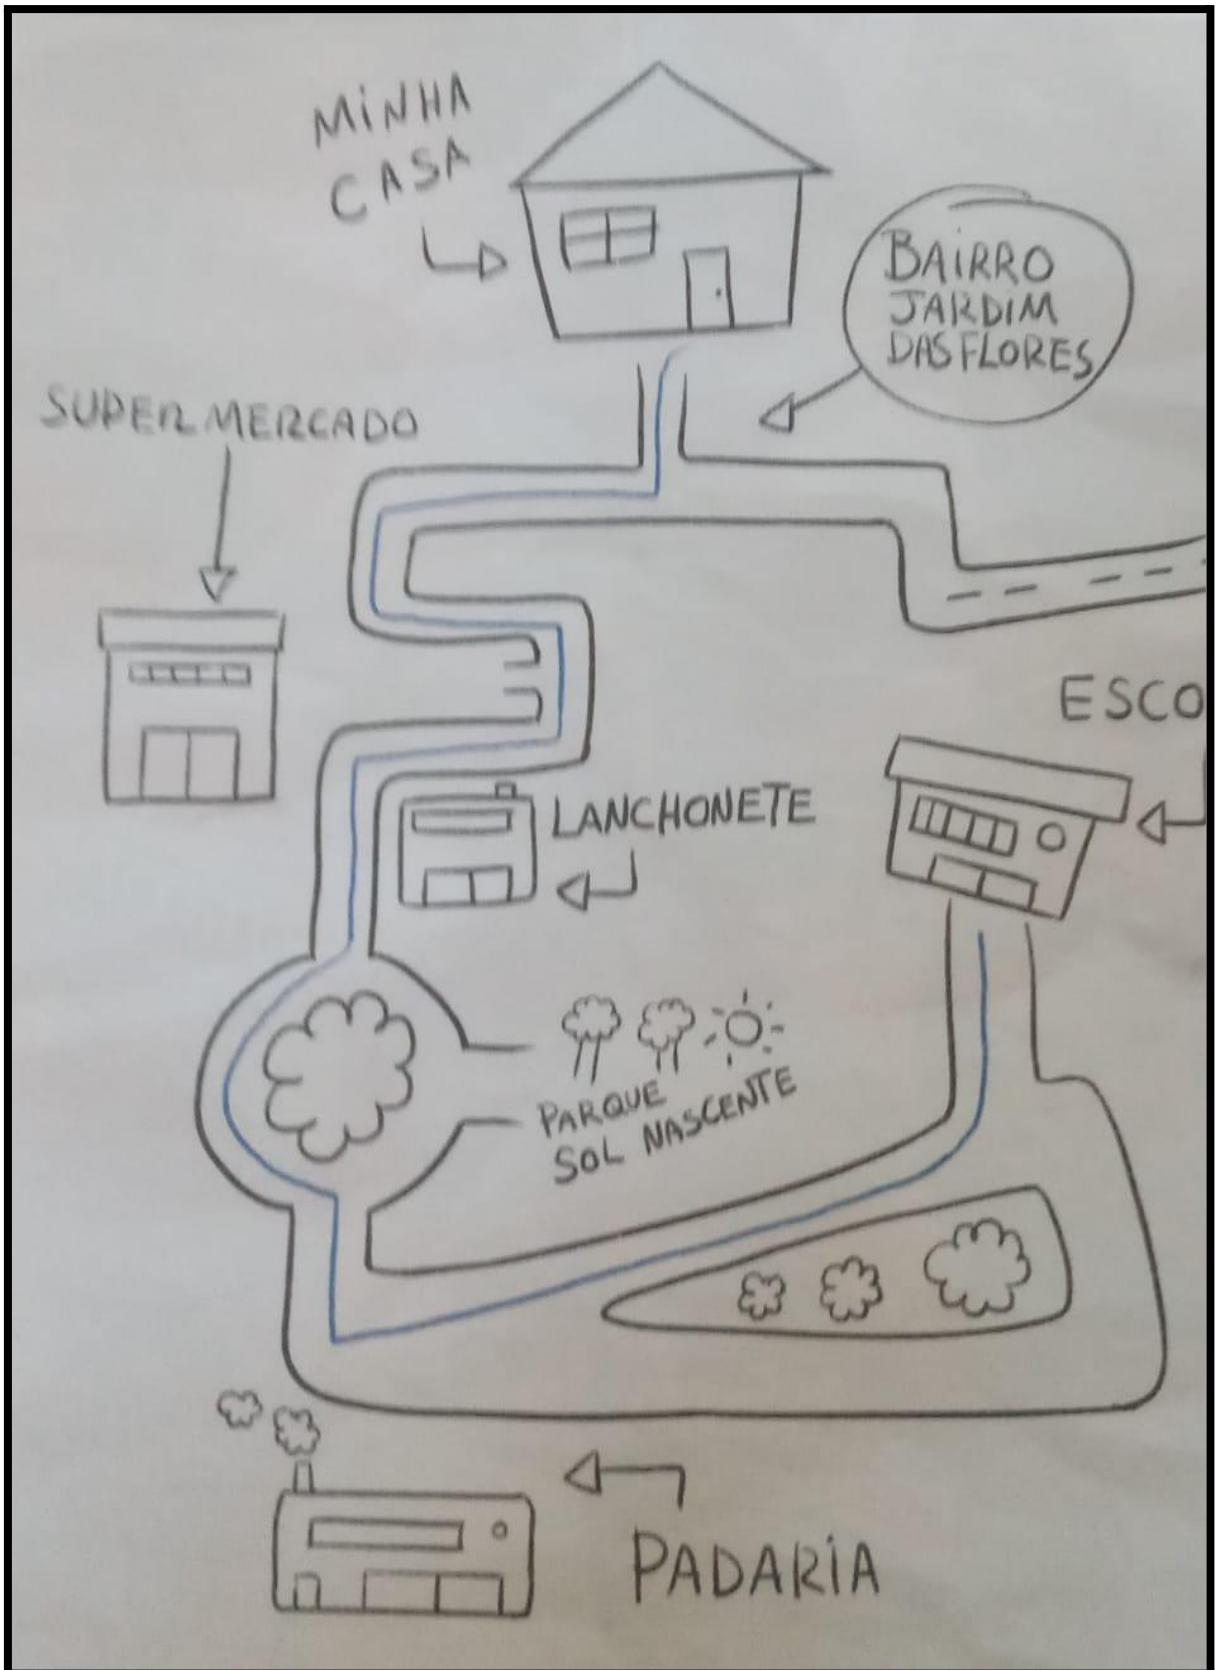 MINHA
CASA
BAIRRO
JARDIM
DAS FLORES
SUPERMERCADO
ESCO
LANCHONETE
PARQUE
SOL NASCENTE
PADARIA